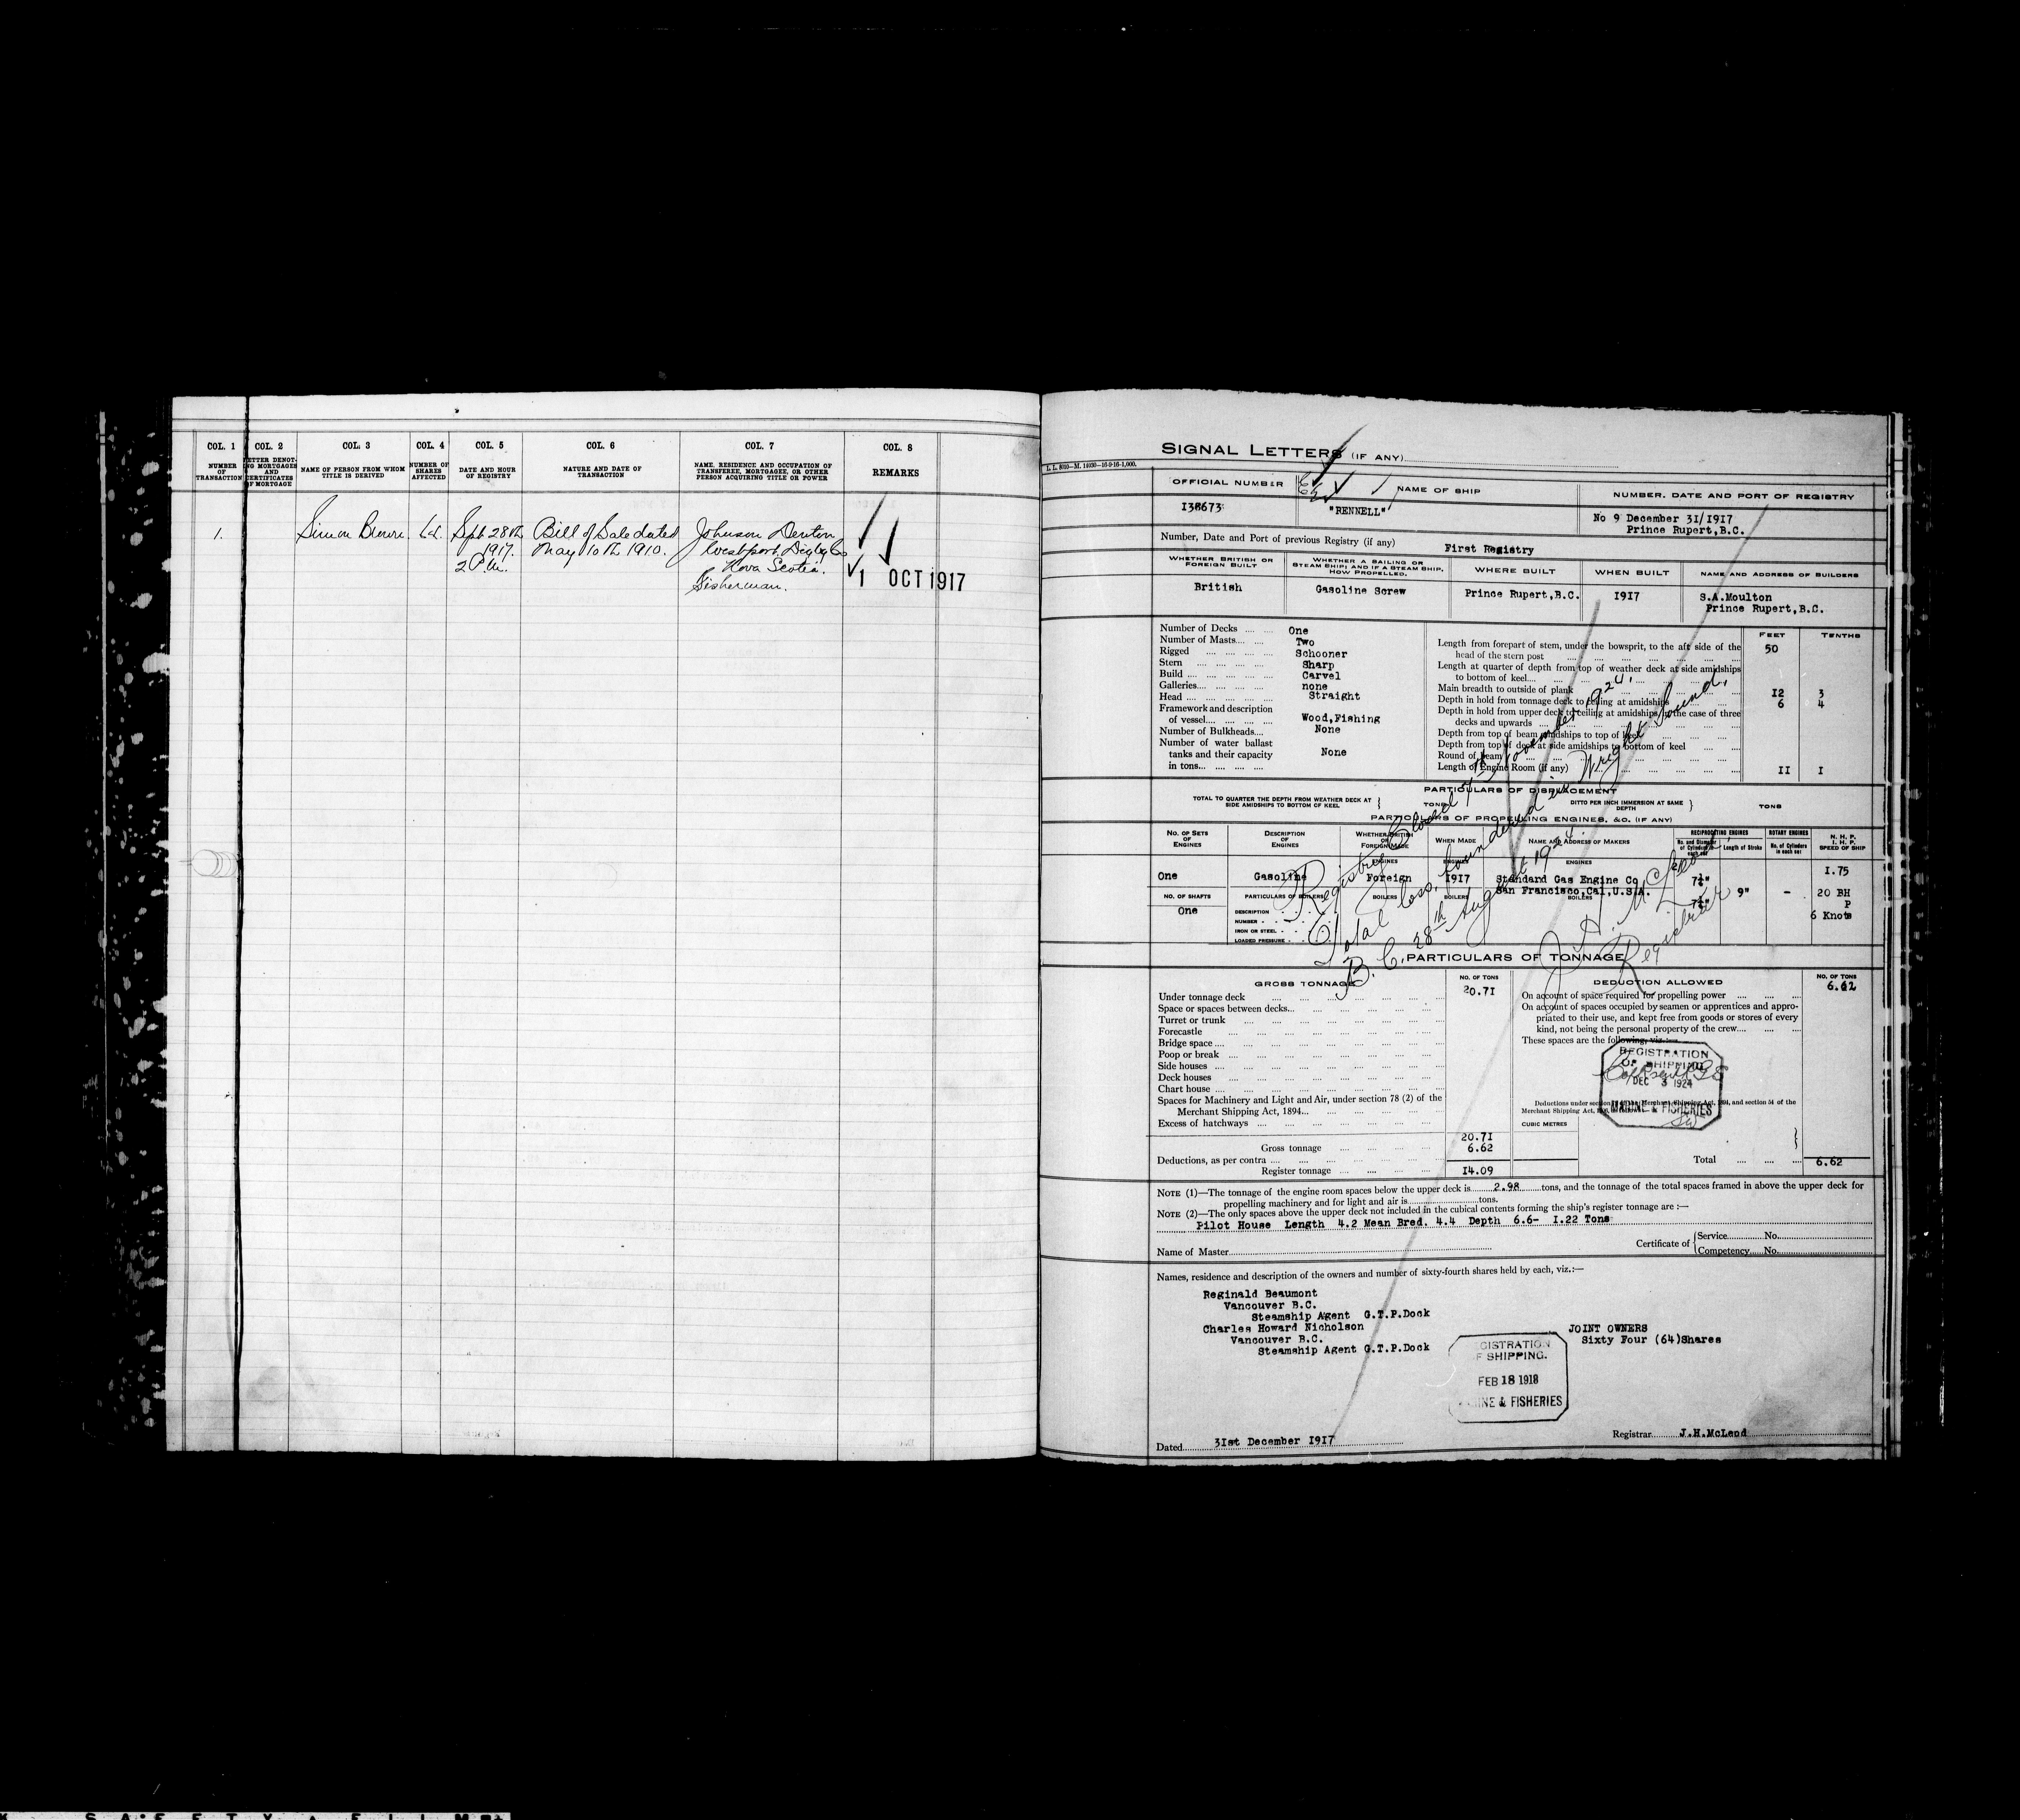 COL. 1
NUMBER OF TRANSACTION
COL. 2
LETTER DENOTING MORTGAGES AND CERTIFICATES OF MORTGAGE
COL. 3
NAME OF PERSON FROM WHOM TITLE IS DERIVED
COL. 4
NUMBER OF SHARES AFFECTED
COL. 5
DATE AND HOUR OF REGISTRY
COL. 6
NATURE AND DATE OF TRANSACTION
COL. 7
NAME, RESIDENCE AND OCCUPATION OF TRANSFEREE, MORTGAGEE, OR OTHER PERSON ACQUIRING TITLE OR POWER
COL. 8
REMARKS
1.
Simon
Sept 28th 1917. 2 P.M.
Bill of Sale dated May 10th 1910.
Johnson Denton
Westport, Digby Co
Nova Scotia.
Fisherman.
1 OCT 1917
SIGNAL LETTERS (IF ANY)
OFFICIAL NUMBER
NAME OF SHIP
NUMBER, DATE AND PORT OF REGISTRY
138673
"RENNELL"
No 9 December 31/1917
Prince Rupert,B.C.
Number, Date and Port of previous Registry (if any) First Registry
WHETHER BRITISH OR FOREIGN BUILT
WHETHER A SAILING OR STEAM SHIP; AND IF A STEAM SHIP, HOW PROPELLED.
WHERE BUILT
WHEN BUILT
NAME AND ADDRESS OF BUILDERS
British
Gasoline Screw
Prince Rupert,B.C.
1917
S.A.Moulton
Prince Rupert,B.C.
Number of Decks One
Number of Masts Two
Rigged Schooner
Stern Sharp
Build Carvel
Galleries none
Head Straight
Framework and description
of vessel Wood,Fishing
Number of Bulkheads None
Number of water ballast
tanks and their capacity
in tons None
FEET TENTHS
Length from forepart of stem, under the bowsprit, to the aft side of the
head of the stern post 50
Length at quarter of depth from top of weather deck at side amidships
to bottom of keel
Main breadth to outside of plank 12 3
Depth in hold from tonnage deck to ceiling at amidships 6 4
Depth in hold from upper deck to ceiling at amidships, in the case of three
decks and upwards
Depth from top of beam amidships to top of keel
Depth from top of deck at side amidships to bottom of keel
Round of beam
Length of Engine Room (if any) 11 1
PARTICULARS OF DISPLACEMENT
TOTAL TO QUARTER THE DEPTH FROM WEATHER DECK AT SIDE AMIDSHIPS TO BOTTOM OF KEEL TONS
DITTO PER INCH IMMERSION AT SAME DEPTH TONS
PARTICULARS OF PROPELLING ENGINES, &C. (IF ANY)
No. OF SETS OF ENGINES
DESCRIPTION OF ENGINES
WHETHER BRITISH OR FOREIGN MADE
WHEN MADE
NAME AND ADDRESS OF MAKERS
RECIPROCATING ENGINES
No. and Diameter of Cylinders in each set
Length of Stroke
ROTARY ENGINES
No. of Cylinders in each set
N. H. P.
I. H. P.
SPEED OF SHIP
ENGINES ENGINES ENGINES
One
Gasoline
Foreign
1917
Standard Gas Engine Co
San Francisco,Cal,U.S.A.
9"
-
1.75
20 BH
P
6 Knots
NO. OF SHAFTS
One
PARTICULARS OF BOILERS
BOILERS BOILERS BOILERS
DESCRIPTION
NUMBER
IRON OR STEEL
LOADED PRESSURE
Registry Closed 7th November 1924.
Total loss, foundered in Wright Sound,
B.C. 28th August 1924.
J. H. McLeod
Registrar
PARTICULARS OF TONNAGE
GROSS TONNAGE
NO. OF TONS
Under tonnage deck 20.71
Space or spaces between decks
Turret or trunk
Forecastle
Bridge space
Poop or break
Side houses
Deck houses
Chart house
Spaces for Machinery and Light and Air, under section 78 (2) of the
Merchant Shipping Act, 1894
Excess of hatchways
Gross tonnage 20.71
Deductions, as per contra 6.62
Register tonnage 14.09
DEDUCTION ALLOWED
NO. OF TONS
On account of space required for propelling power 6.62
On account of spaces occupied by seamen or apprentices and appro-
priated to their use, and kept free from goods or stores of every
kind, not being the personal property of the crew
These spaces are the following, viz.:—
REGISTRATION
OF SHIPPING
DEC 3 1924
MARINE & FISHERIES
CUBIC METRES
Total 6.62
NOTE (1)—The tonnage of the engine room spaces below the upper deck is 2.98 tons, and the tonnage of the total spaces framed in above the upper deck for
propelling machinery and for light and air is tons.
NOTE (2)—The only spaces above the upper deck not included in the cubical contents forming the ship's register tonnage are :—
Pilot House Length 4.2 Mean Bred. 4.4 Depth 6.6- 1.22 Tons
Name of Master
Certificate of
Service No.
Competency No.
Names, residence and description of the owners and number of sixty-fourth shares held by each, viz.:—
Reginald Beaumont
Vancouver B.C.
Steamship Agent G.T.P.Dock
Charles Howard Nicholson
Vancouver B.C.
Steamship Agent G.T.P.Dock
JOINT OWNERS
Sixty Four (64)Shares
GISTRATION
F SHIPPING.
FEB 18 1918
INE & FISHERIES
Dated 31st December 1917
Registrar J.H.McLeod